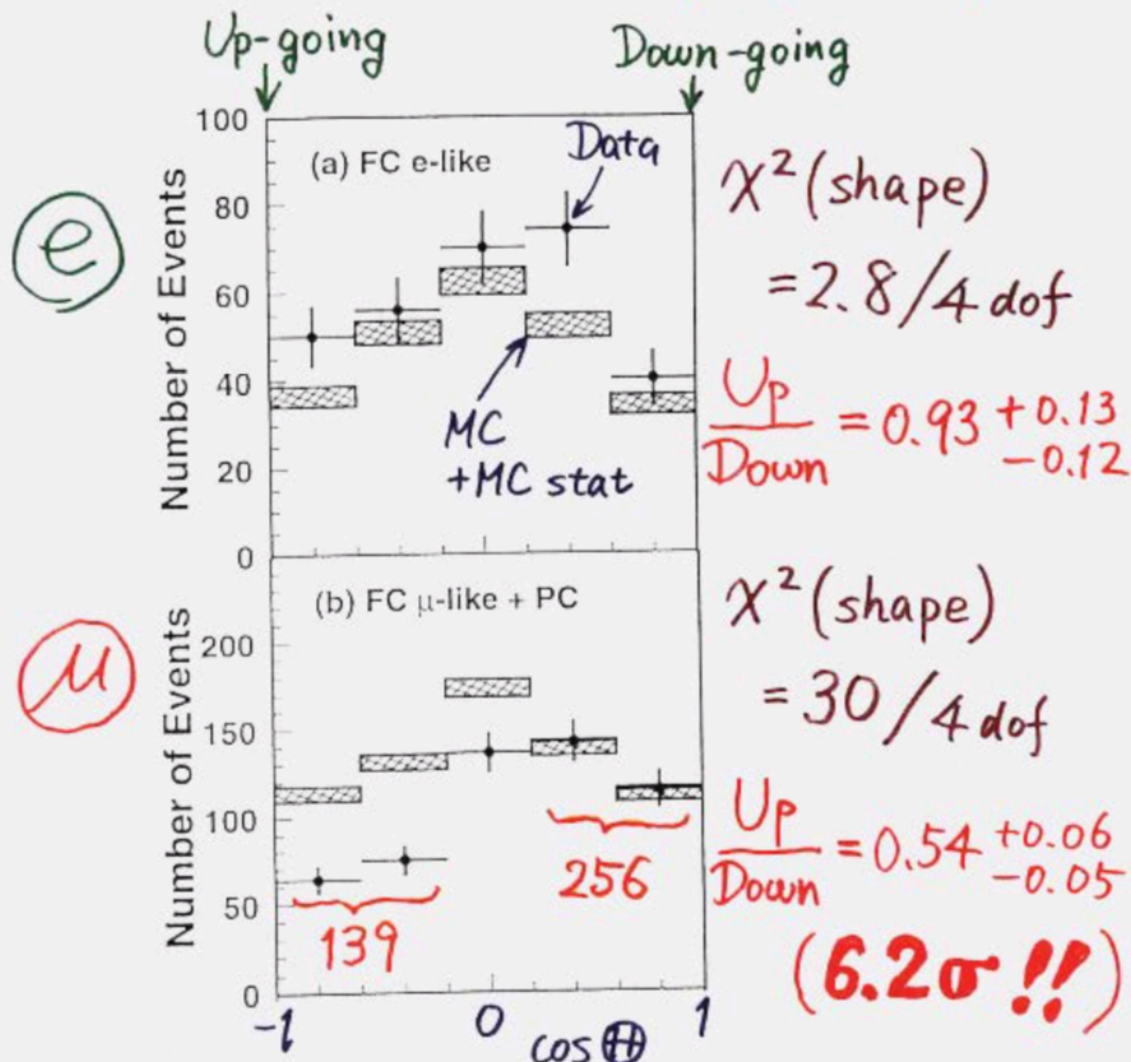 Up-going
Down-going
e
Number of Events
100
80
60
40
20
0
(a) FC e-like
Data
MC
+MC stat
χ² (shape)
= 2.8/4 dof
Up/Down = 0.93 +0.13 -0.12
μ
Number of Events
200
150
100
50
0
(b) FC μ-like + PC
139
256
-1 0 1
cos Θ
χ² (shape)
= 30/4 dof
Up/Down = 0.54 +0.06 -0.05
(6.2σ !!)